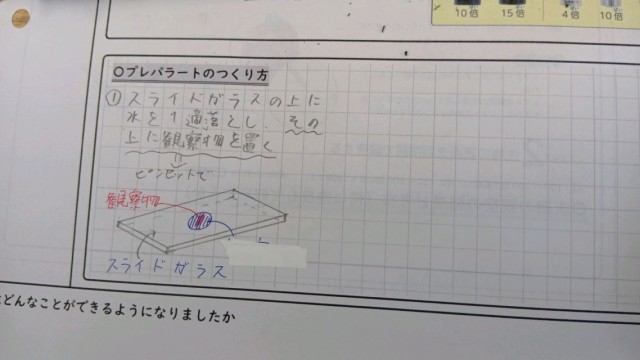 10倍 15倍 4倍 10倍
○プレパラートのつくり方
①スライドガラスの上に
水を1滴落とし、その
上に観察物を置く
ピンセットで
観察物
スライドガラス
どんなことができるようになりましたか